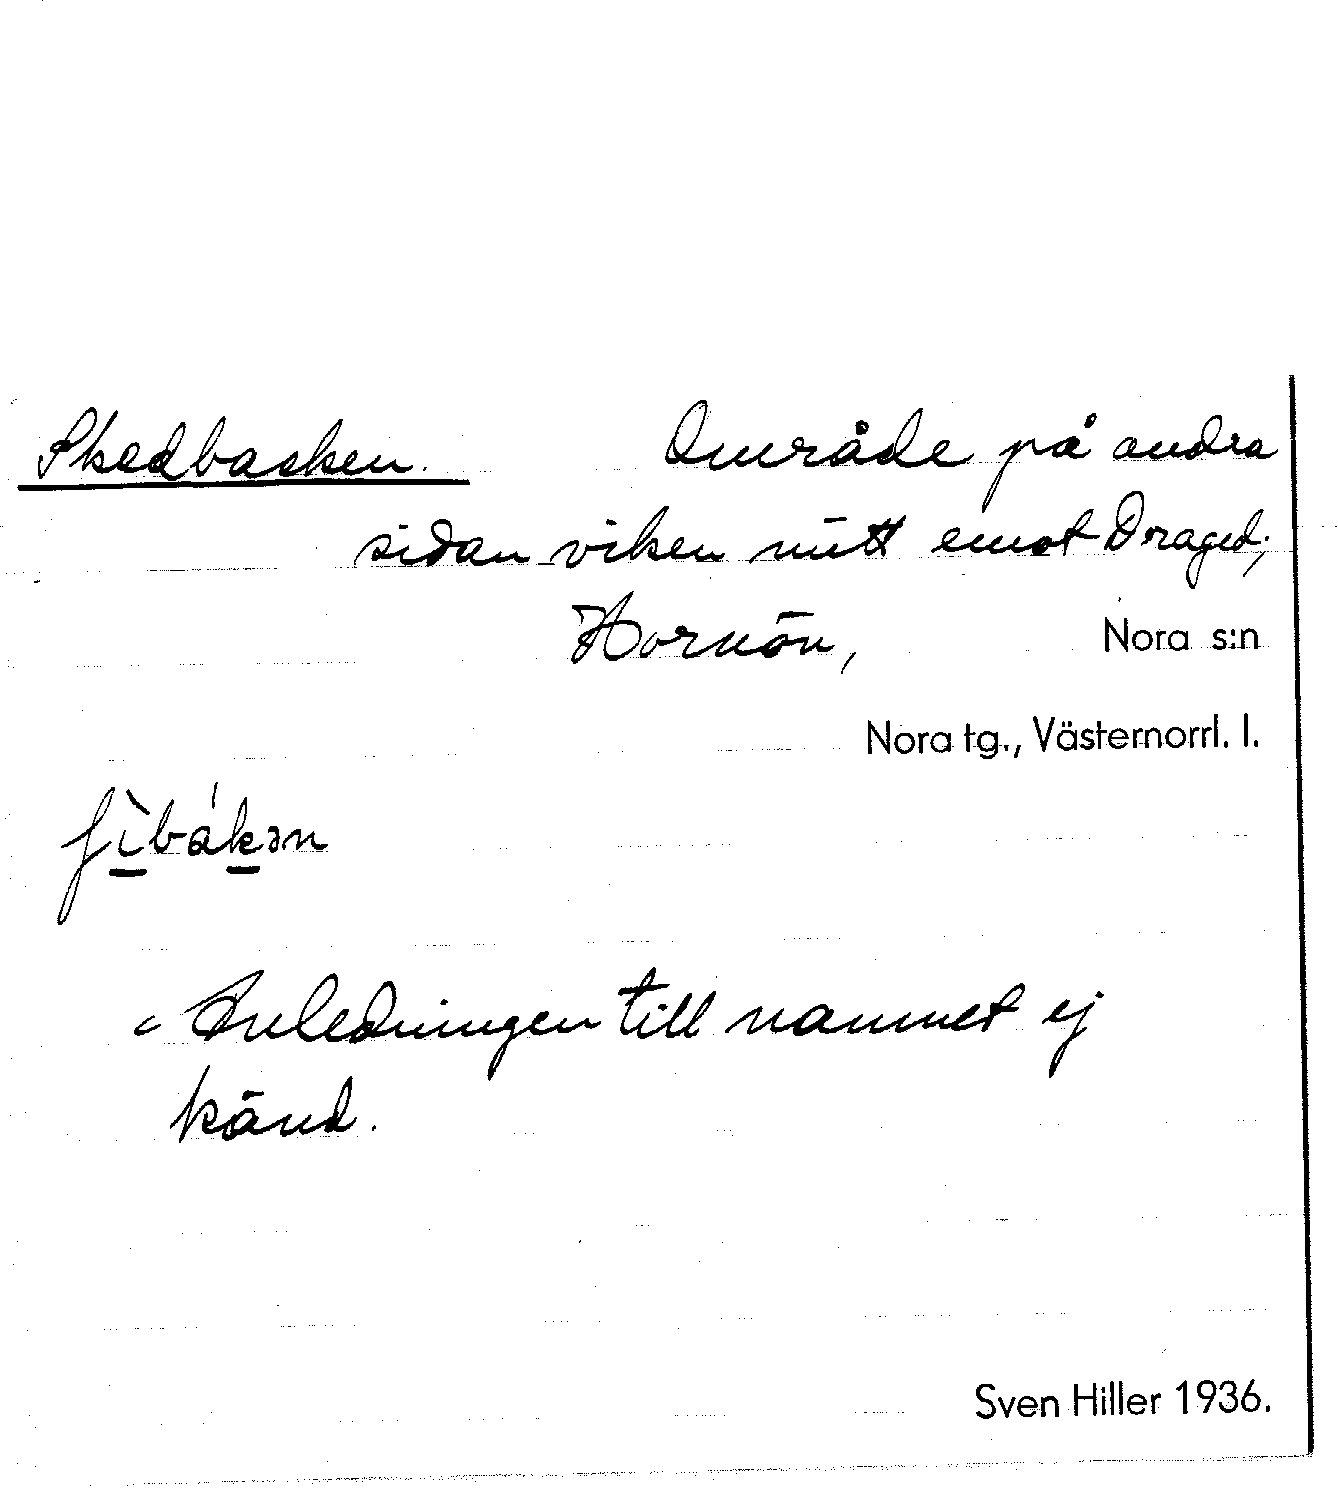 Skedbacken. Område på andra
sidan viken mitt emot Draget;
Hornön, Nora s:n
Nora tg., Västernorrl. l.
ʃìbákən
Anledningen till namnet ej
känd.
Sven Hiller 1936.